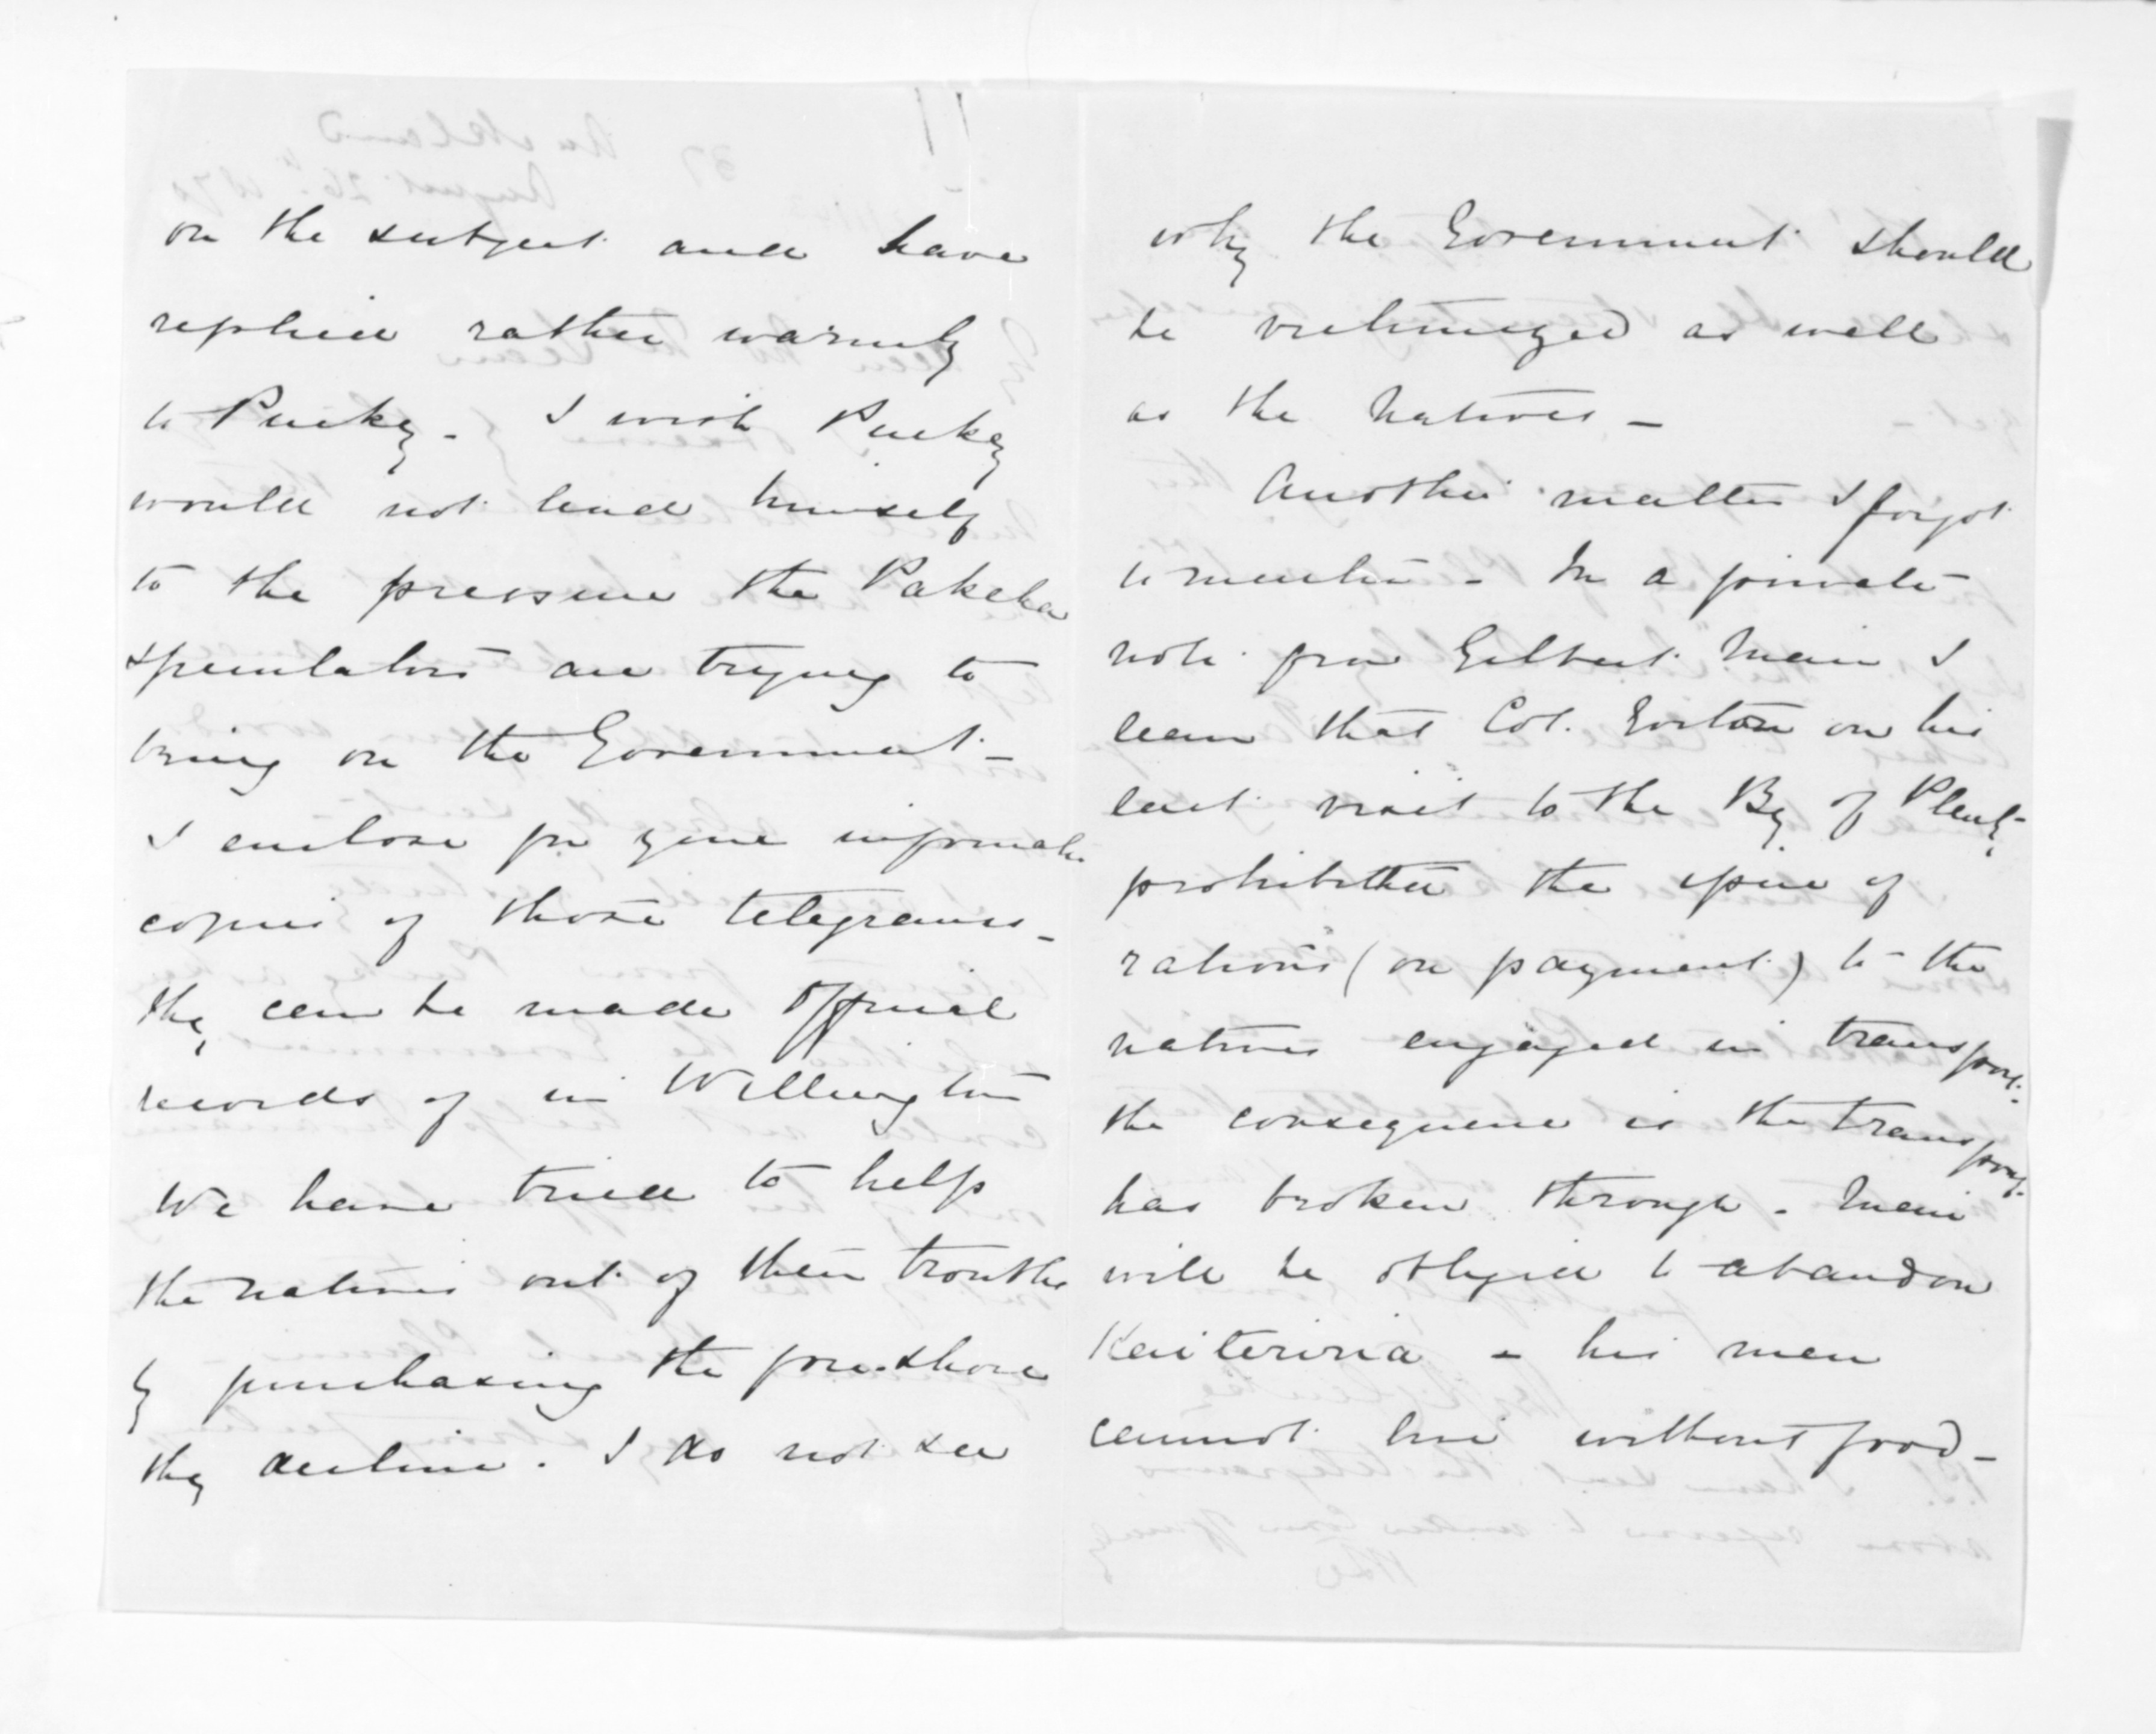 on the subject and have
replied rather warmly
to Puckey - I wish Puckey
would not lend himself
to the pressure the Pakeha
speculators are trying to
bring on the Government -
I enclose for your informatn
copies of those telegrams -
they can be made official
records of in Wellington
We have tried to help
the natives out of their troubles
by purchasing the fore-shore
they decline. I do not see
why the Government should
be victimized as well
as the Natives -
Another matter I forgot
to mention - In a private
note from Gilbert Mair I
learn that Col. Gorton on his
last visit to the By. of Plenty
prohibitted the issue of
rations (on payment) to the
natives engaged in transport.
the consequence is the transport
has broken through - Mair
will be obliged to abandon
Kaiteriria - his men
cannot live without food -